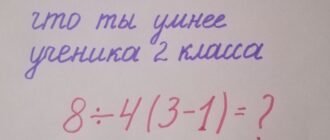 что ты умнее
ученика 2 класса
8÷4(3-1)=?